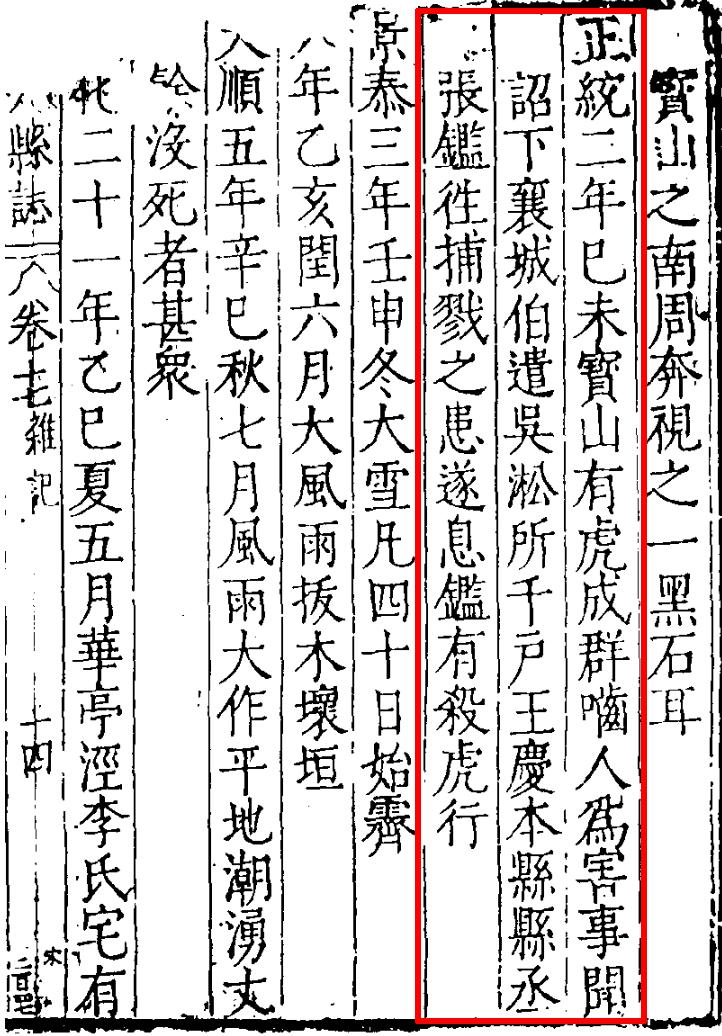 寳山之南周奔視之一黑石耳
正統二年巳未寳山有虎成群嚙人爲害事聞
詔下襄城伯遣吳淞所千戸王慶本縣縣丞
張鑑徃捕戮之患遂息鑑有殺虎行
景泰三年壬申冬大雪凡四十日始霽
八年乙亥閏六月大風雨拔木壞垣
順五年辛巳秋七月風雨大作平地潮湧丈
没死者甚衆
二十一年乙巳夏五月華亭涇李氏宅有
縣誌 卷十七雜記 十四